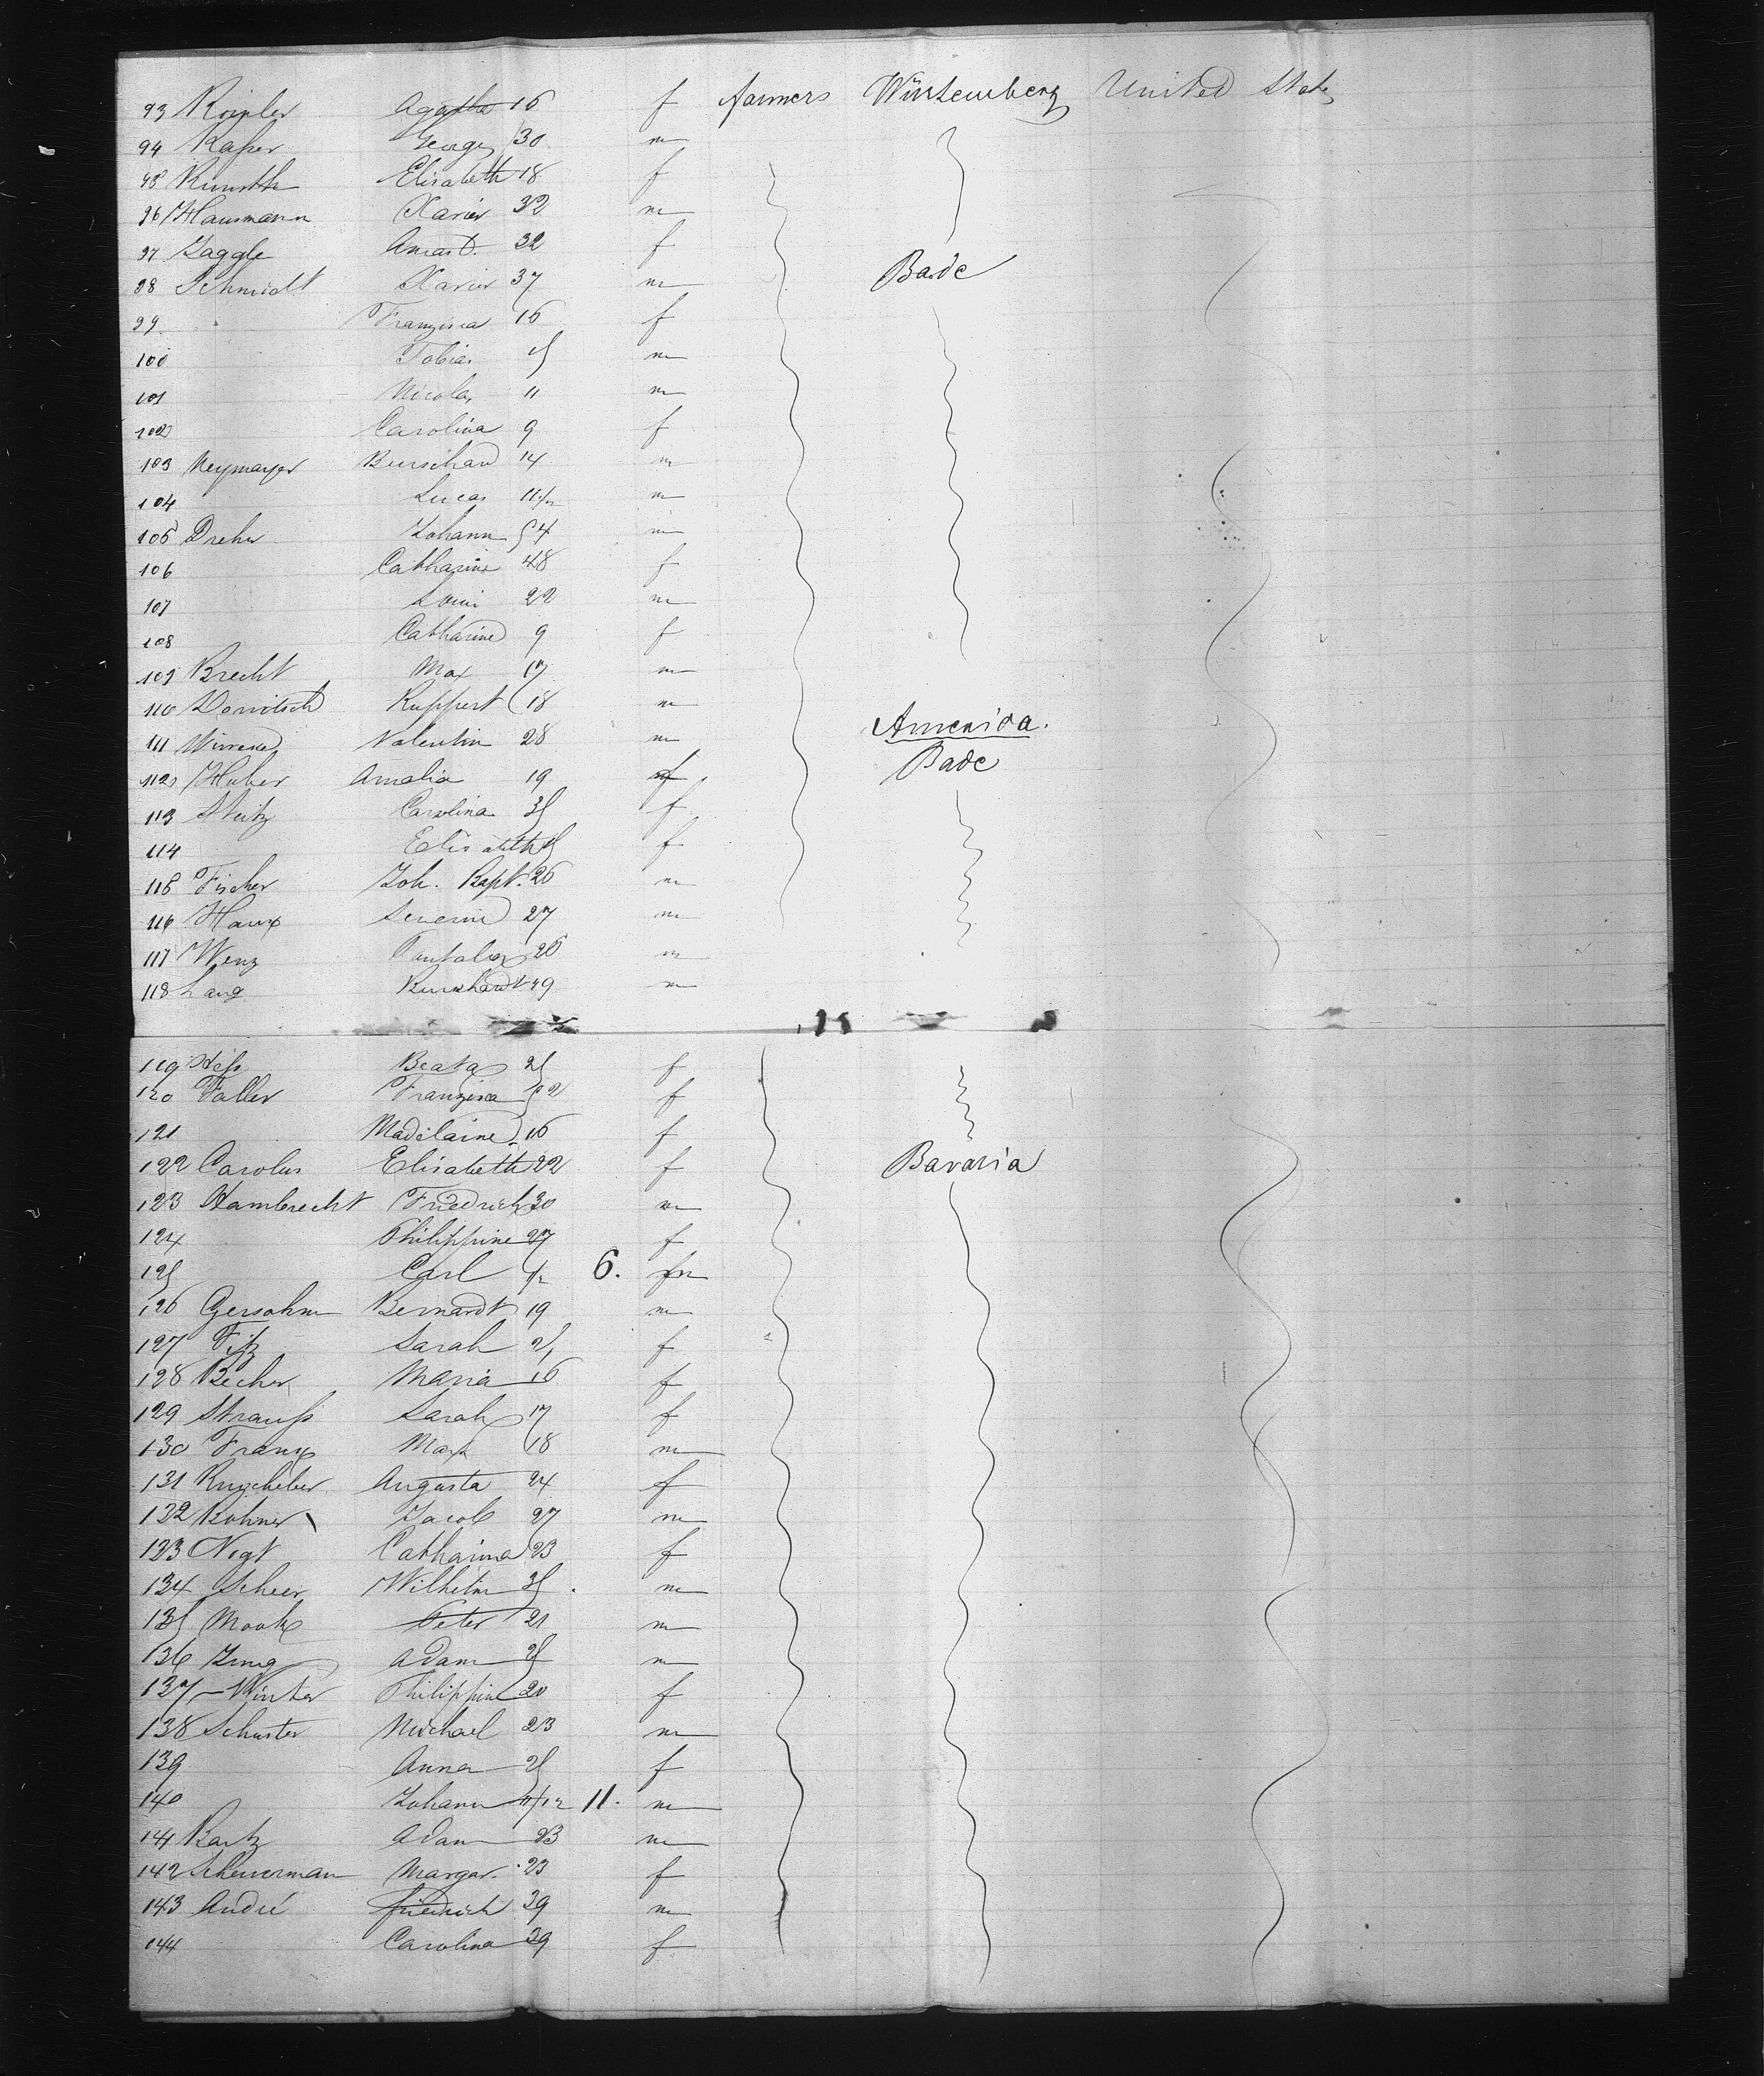 93 Rimpler Agatha 16 f farmers Würtemberg United States
94 Kaßer George 30 m
95 Elisabeth 18 f
96 Hausmann Xavier 32 m
97 Jaggle 32 f
98 Schmidt Xavier 37 m Bade
99 Franzisca 16 f
100 Tobias 15 m
101 Nicolas 11 m
102 Carolina 9 f
103 Neymayer 14 m
104 Lucas m
105 Dreher Johann 54 m
106 Catharine 48 f
107 Louis 22 m
108 Catharine 9 f
109 Brecht Max 17 m
110 Ruppert 18 m
111 Valentin 28 m America.
112 Huber Amalia 19 f Bade
113 Carolina 35 f
114 Elisabeth f
115 Fischer Joh. Bapt. 26 m
116 Severin 27 m
117 Wenz 26 m
118 Lang m
119 Heß Beata 25 f
120 Faller Franzisca 52 f
121 Madelaine 16 f
122 Carolus Elisabeth 22 f Bavaria
123 Hambrecht Friedrich 30 m
124 Philippine 27 f
125 Carl 6. m
126 Gersohm Bernardt 19 m
127 Sarah f
128 Becher Maria 16 f
129 Strauß Sarah 17 f
130 Franz Max 18 m
131 Augusta 24 f
132 Bohner Jacob 27 m
133 Vogt Catharina 23 f
134 Scheer Wilhelm 35 m
135 Mook Peter 21 m
136 Adam 25 m
137 Winter Philippine 20 f
138 Schuster Michael 23 m
139 Anna 25 f
140 Johann 11/12 11. m
141 Bartz Adam 23 m
142 Scheuerman Margar. 23 f
143 André Friedrich 39 m
144 Carolina 39 f